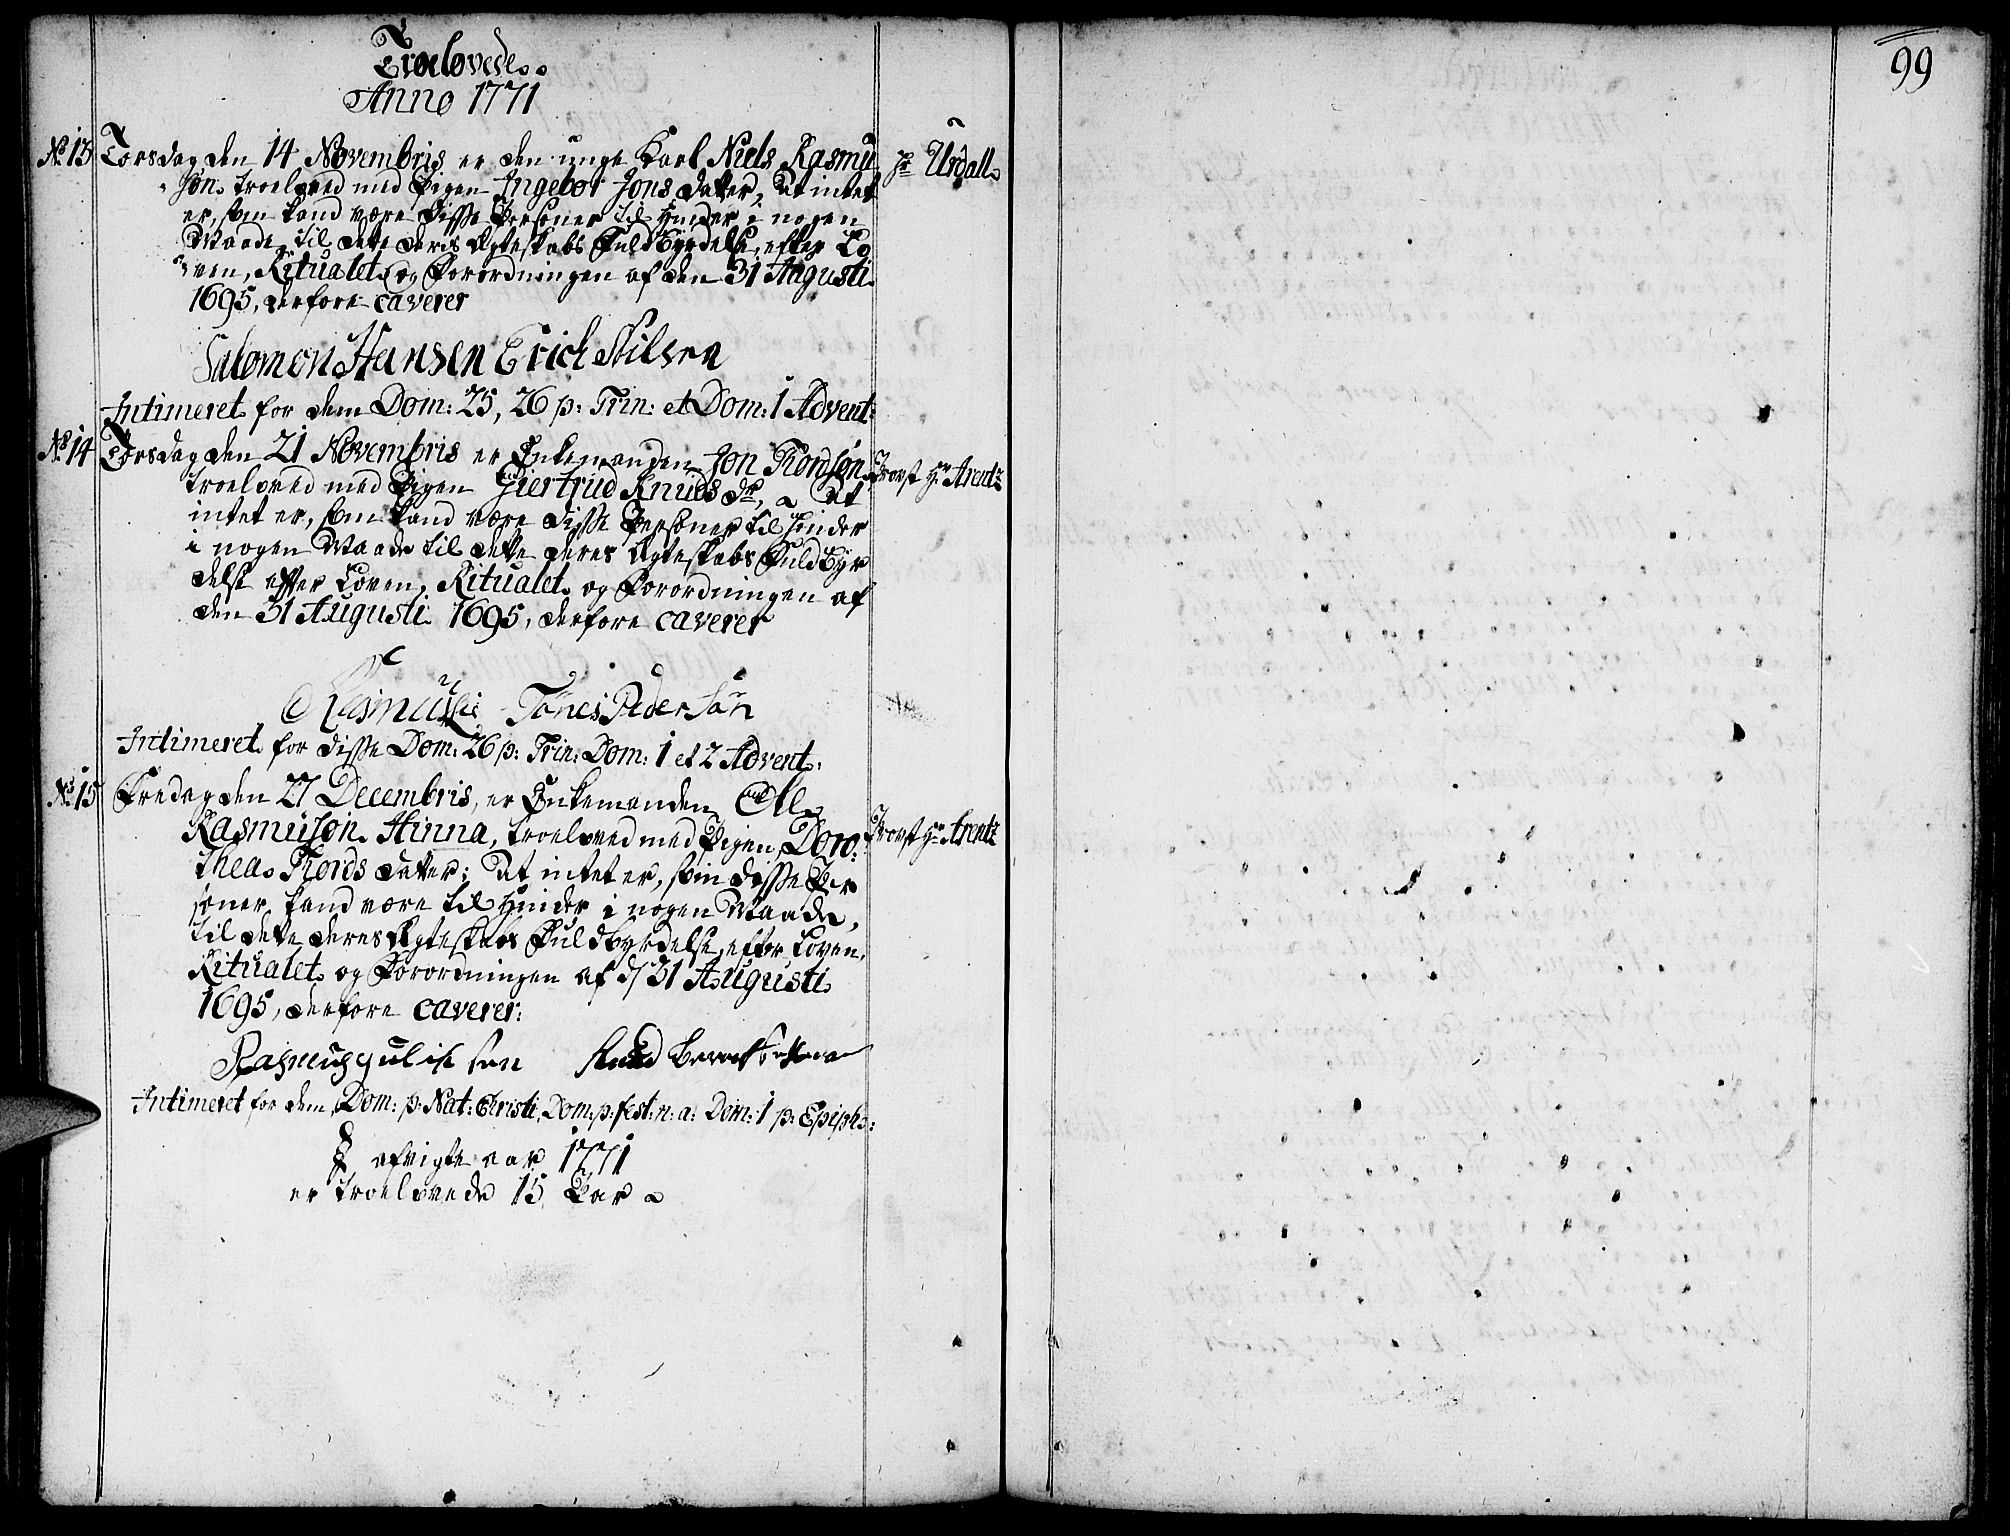 Troelovede
Anno 1771
No 13 Torsdag den 14 Novembris er den unge Karl Niels Rasmu
Hr Urdall
søn troeloved med Pigen Ingebor Jons datter, At intet
er, som kand være disse Persøner til Hinder i nogen
Maade, til dette deris Ægteskabs Fuldbyrdelse, efter Lo
ven, Ritualet og Forordningen af den 31 Augusti
1695, derfore caverer
Salomon Hansen Erich
Intimeret for dem Dom: 25, 26 p: Trin: et Dom: 1 Advent:
No 14 Torsdag den 21 Novembris er Enkemanden Jon Thordsøn
Provst Hr Arentz
troeloved med Pigen Giertrud Knuds dr, At
intet er, som kand være disse Persøner til Hinder
i nogen Maade til dette deres Ægteskabs Fuldbyr
delse efter Loven, Ritualet og Forordningen af
den 31 Augusti 1695, derfore caverer
Tønes Peder Søn
Intimeret for disse Dom: 26 p: Trin: Dom: 1 et 2 Advent:
No 15 Fredag den 27 Decembris, er Enkemanden Ole
Provst Hr Arentz
Rasmusøn Hinna, troeloved med Pigen Doro:
thea Thords datter; At intet er, som disse Per
søner kand være til Hinder i nogen Maade,
til dette deres Ægteskabs Fuldbyrdelse, efter Loven,
Ritualet og Forordningen af d/ 31 Augusti
1695, derfore caverer:
Rasmus søn Knud
Intimeret for dem Dom: p: Nat: Christi, Dom: p: fest: n: a: Dom: 1 p: Epiph:
I afvigte aar 1771
er troelovede 15 Par
99